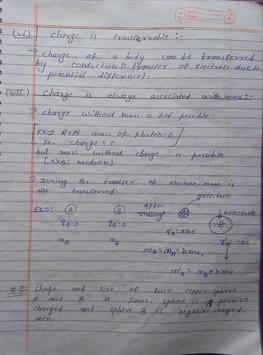 (vi) charge is transferrable :-
→ charge of a body can be transferred
by conduction [Transfer of electron due to
potential difference].
(vii) charge is always associated with mass :-
→ charge without mass is not possible
Ex → Rest mass of photon = 0
So, charge = 0
but mass without charge is possible
(ex: neutron).
→ During the transfer of electron mass is
also transferred
Ex :- A B After rubbing
qA = 0 qB = 0
mA mB
n electron
qA = +ne
qB = -ne
m'A = mA - nme
m'B = mB + nme
Shape and size of two sphere
A and B is same. sphere A is positive
charged and sphere B is negative charged,